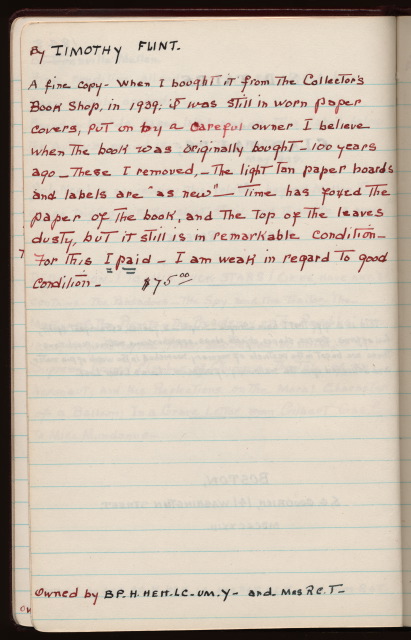 By TIMOTHY FLINT.
A fine copy - When I bought it from The Collector's
Book Shop, in 1939; it was still in worn paper
covers, put on by a careful owner I believe
when the book was originally bought - 100 years
ago - These I removed, - The light Tan paper boards
and labels are "as new" - Time has foxed The
paper of the book, and the top of the leaves
dusty, but it still is in remarkable condition -
For this I paid - I am weak in regard to good
condition - $75.00
Owned by B.P. H. HEH. LC. UM. Y - and Mrs R.C.T -